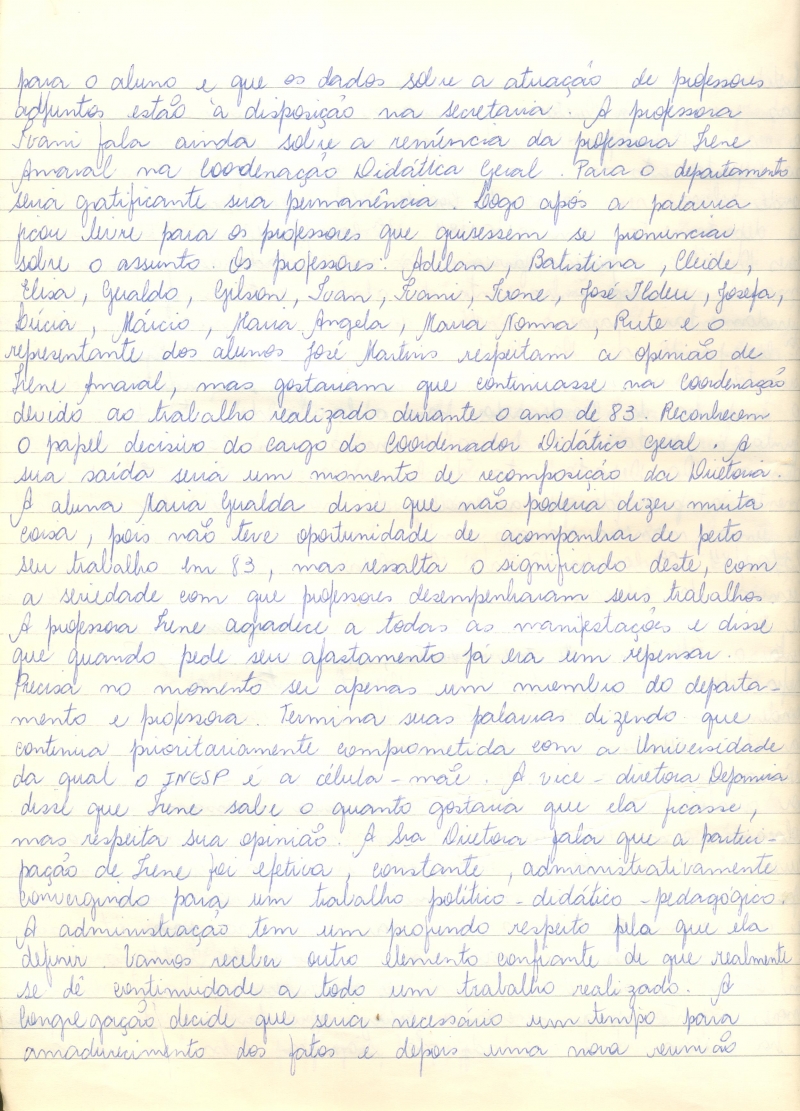 para o aluno e que os dados sobre a atuação de professores
adjuntos estão à disposição na secretaria. A professora
Ivani fala ainda sobre a renúncia da professora Irene
Amaral na Coordenação Didática Geral. Para o departamento
seria gratificante sua permanência. Logo após a palavra
ficou livre para os professores que quisessem se pronunciar
sobre o assunto. Os professores: Adilan, Batistina, Cleide,
Elisa, Gualdo, Gilson, Ivan, Ivani, Ivone, José Ildeu, Josefa,
Lúcia, Márcio, Maria Angela, Maria Nonna, Rute e o
representante dos alunos José Martins respeitam a opinião de
Irene Amaral, mas gostariam que continuasse na Coordenação
devido ao trabalho realizado durante o ano de 83. Reconhecem
o papel decisivo do cargo do Coordenador Didático Geral. A
sua saída seria um momento de recomposição da Diretoria.
A aluna Maria Gualda disse que não poderia dizer muita
coisa, pois não teve oportunidade de acompanhar de perto
seu trabalho em 83, mas ressalta o significado deste, com
a seriedade com que professores desempenharam seus trabalhos
A professora Irene agradece a todas as manifestações e disse
que quando pede seu afastamento já era um repensar.
Precisa no momento ser apenas um membro do departa-
mento e professora. Termina suas palavras dizendo que
continua prioritariamente comprometida com a Universidade
da qual o INESP é a célula-mãe. A vice-diretora Dejanira
disse que Irene sabe o quanto gostaria que ela ficasse,
mas respeita sua opinião. A Sra Diretora fala que a partici-
pação de Irene foi efetiva, constante, administrativamente
convergindo para um trabalho político-didático-pedagógico.
A administração tem um profundo respeito pela que ela
definir. Vamos receber outro elemento confiante de que realmente
se dê continuidade a todo um trabalho realizado. A
Congregação decide que seria necessário um tempo para
amadurecimento dos fatos e depois uma nova reunião